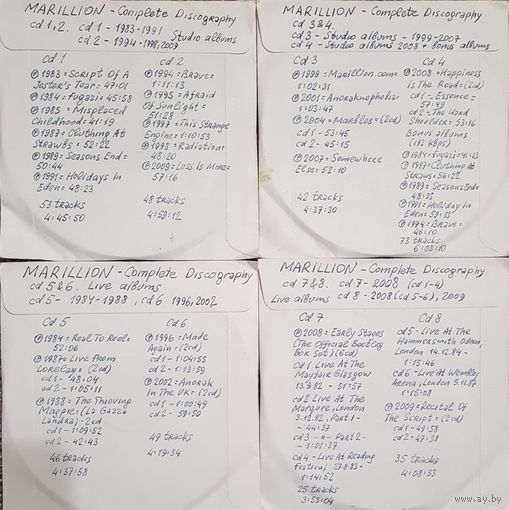 MARILLION - Complete Discography
cd 1,2. cd 1 - 1983-1991
Studio albums
cd 2 - 1994-1998, 2009
Cd 1
℗ 1983 = Script Of A
Jester's Tear: 47:01
℗ 1984 = Fugazi: 45:58
℗ 1985 = Misplaced
Childhood = 41:19
℗ 1987 = Clutching At
Straws: 52:22
℗ 1989 = Seasons End =
50:44
℗ 1991 = Holidays In
Eden = 48:23
53 tracks
4:45:50
cd 2
℗ 1994 = Brave =
1:11:13
℗ 1995 = Afraid
Of Sunlight =
51:28
℗ 1997 = This Strange
Engine: 1:10:53
℗ 1998 = Radiation =
48:20
℗ 2009 = Less Is More =
57:16
48 tracks
4:59:12
MARILLION - Complete Discography
cd 3&4.
cd 3 - Studio albums - 1999-2007
cd 4 - Studio albums 2008 + Bonus albums
Cd 3
℗ 1999 = Marillion.com =
1:02:31
℗ 2001 = Anoraknophobia =
1:03:47
℗ 2004 = Marbles = (2cd)
cd 1 - 53:45
cd 2 - 45:15
℗ 2007 = Somewhere
Else: 52:10
42 tracks
4:37:30
Cd 4
℗ 2008 = Happiness
Is The Road = (2cd)
cd 1 - Essence =
57:49
cd 2 = The Hard
Shoulder = 53:16
Bonus albums
(192 KBps)
℗ 1984 = Fugazi = 41:23
℗ 1987 = Clutching At
Straws = 56:22
℗ 1989 = Seasons End
48:35
℗ 1991 = Holiday In
Eden = 59:33
℗ 1994 = Brave =
46:10
73 tracks
6:03:10
MARILLION - Complete Discography
cd 5&6. Live albums
cd 5 - 1984-1988, cd 6 1996, 2002
Cd 5
℗ 1984 = Real To Reel =
52:06
℗ 1987 = Live From
Loreley = (2cd)
cd 1 - 48:04
cd 2 - 1:05:11
℗ 1988 = The Thieving
Magpie = (La Gazza
Landra) - 2cd
cd 1 - 1:09:52
cd 2 - 42:43
46 tracks
4:37:58
Cd 6
℗ 1996 = Made
Again = (2cd)
cd 1 - 1:04:55
cd 2 - 1:13:59
℗ 2002 = Anorak
In The UK = (2cd)
cd 1 - 1:00:49
cd 2 - 59:50
49 tracks
4:19:34
MARILLION - Complete Discography
cd 7&8. cd 7 - 2008 (cd 1-4)
Live albums cd 8 - 2008 (cd 5-6), 2009
Cd 7
℗ 2008 = Early Stages
(The Official Bootleg
Box Set) (6cd)
cd 1 Live At The
Mayfair Glasgow
13.9.82 - 51:57
cd 2 Live At The
Marquee, London
3.12.82, Part 1 -
- 44:37
cd 3 - " - Part 2 -
- 1:01:37
cd 4 - Live At Reading
Festival 27.8.83 -
1:14:52
25 tracks
3:53:04
Cd 8
cd 5 - Live At The
Hammersmith Odeon,
London 14.12.84 -
1:15:46
cd 6 - Live At Wembley
Arena, London 5.11.87
1:15:08
℗ 2009 = Recital Of
The Script = (2cd)
cd 1 - 49:58
cd 2 - 47:38
35 tracks
4:08:33
www.ay.by